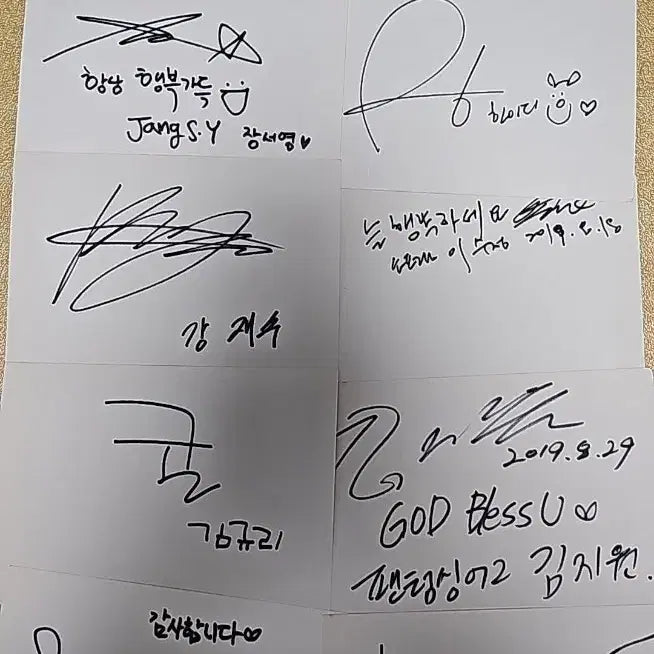 항상 행복가득
Jang S.Y 장서영
하이디
강 재수
늘 행복하세요
이수정 2019.8.18
김규리
2019.8.29
GOD Bless U
팬텀싱어2 김지원.
감사합니다